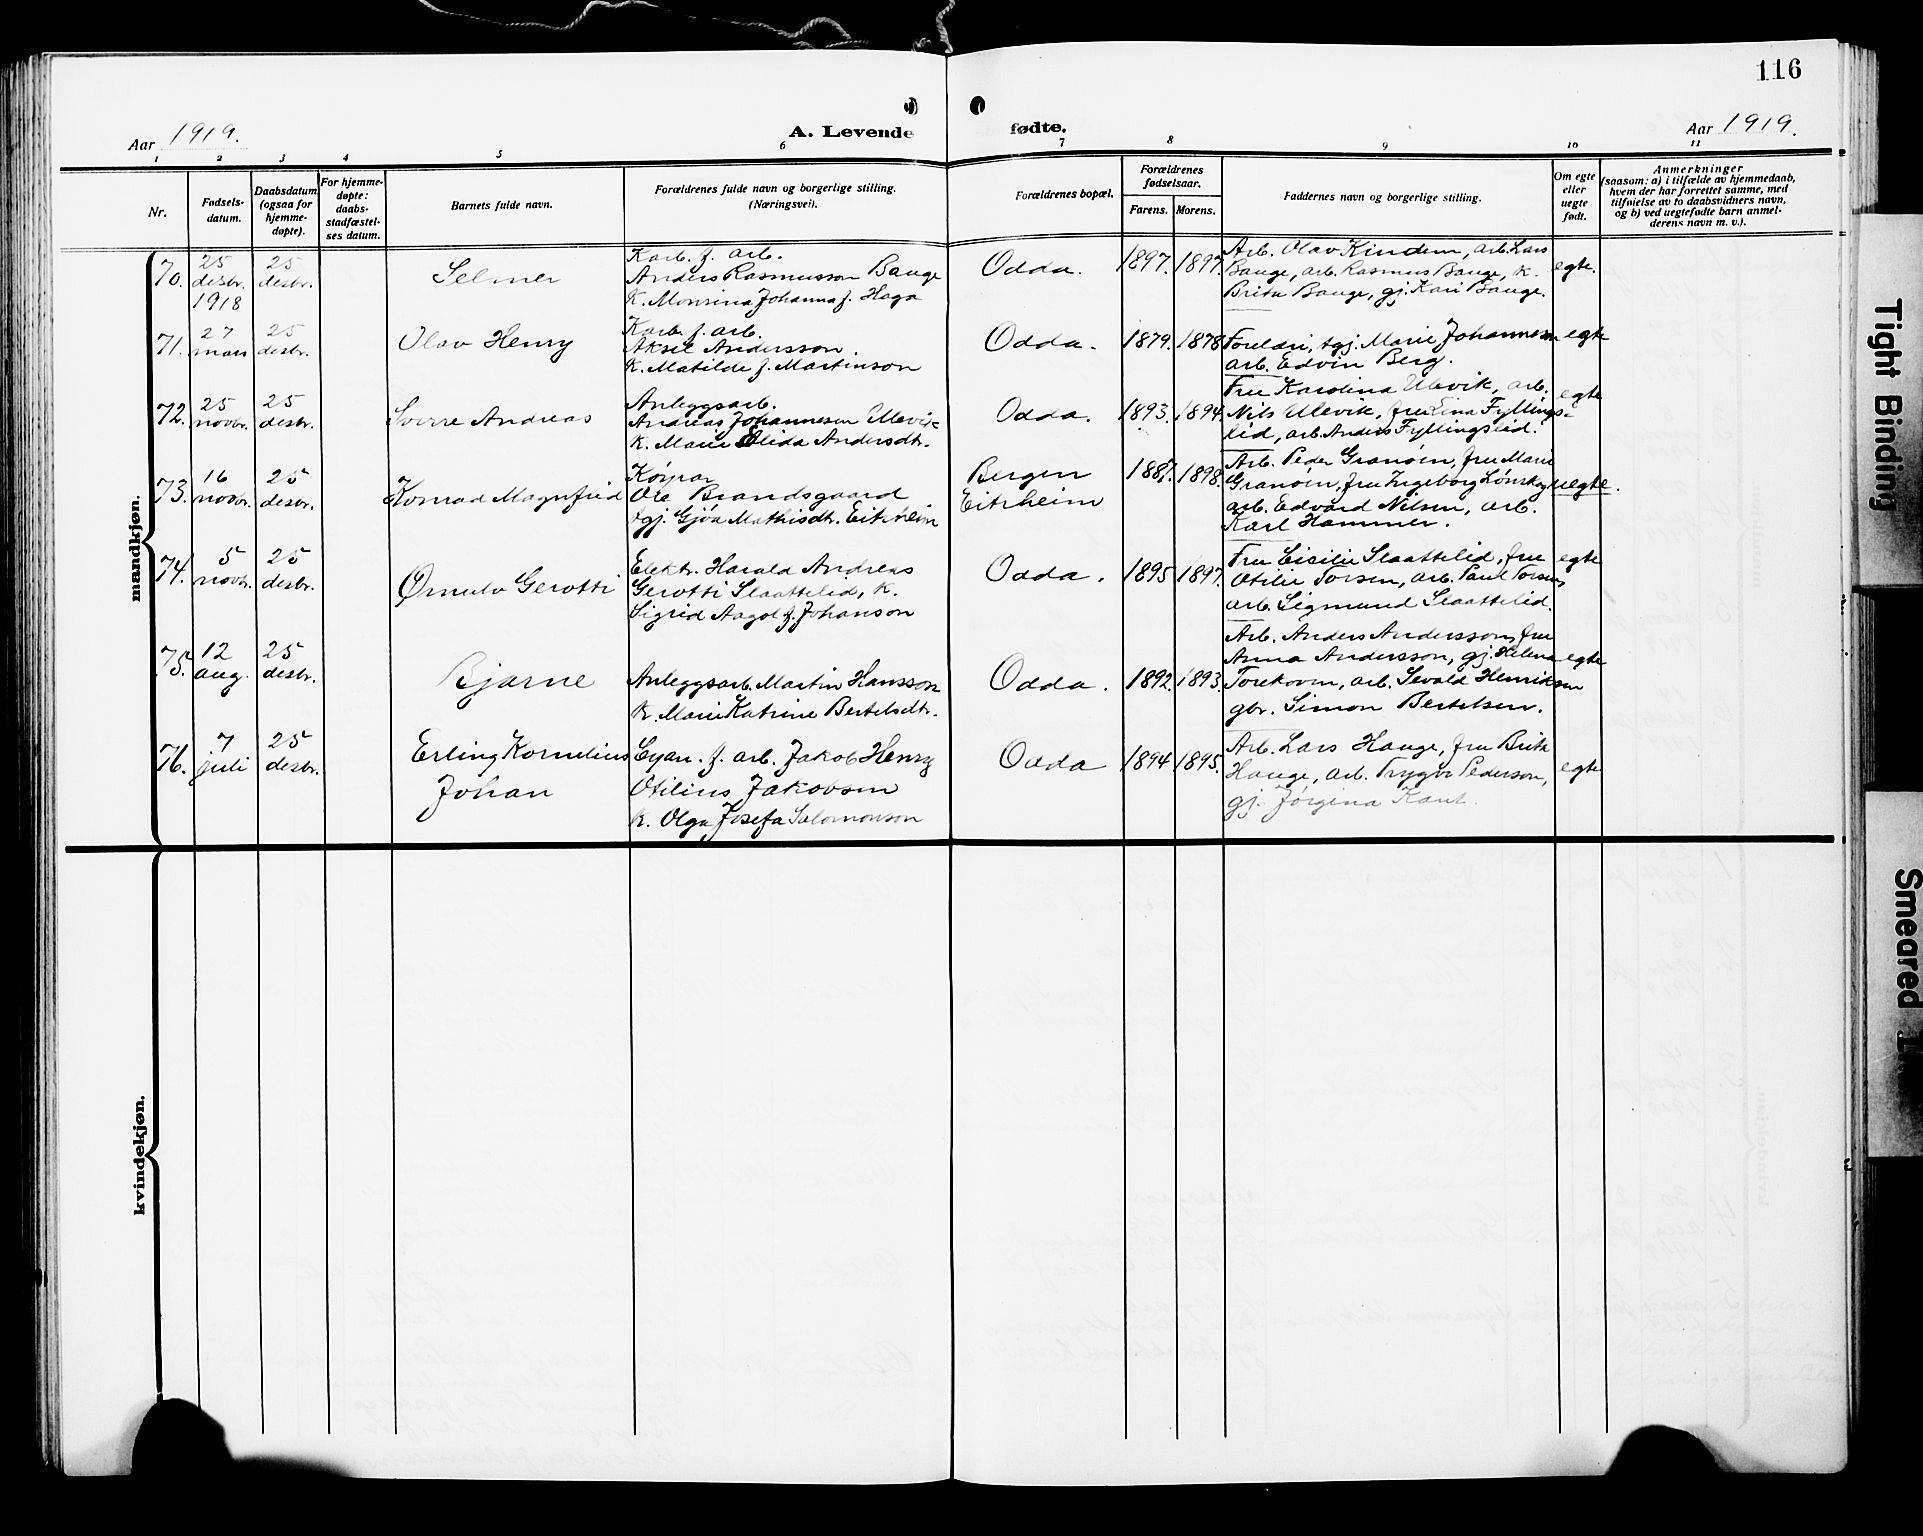 116
Aar 1919.
A. Levende fødte.
Aar 1919.
1 2 3 4 5 6 7 8 9 10 11
Nr.
Fødsels-
datum.
Daabsdatum
(ogsaa for
hjemme-
døpte).
For hjemme-
døpte:
daabs-
stadfæstel-
ses datum.
Barnets fulde navn.
Forældrenes fulde navn og borgerlige stilling.
(Næringsvei).
Forældrenes bopæl.
Forældrenes
fødselsaar.
Farens. Morens.
Faddernes navn og borgerlige stilling.
Om egte
eller
uegte
født.
Anmerkninger
(saasom: a) i tilfælde av hjemmedaab,
hvem der har forrettet samme, med
tilføielse av to daabsvidners navn,
og b) ved uegtefødte barn anmel-
derens navn m. v.).
mandkjøn.
70.
25
desbr.
1918
25
desbr.
Selmer
Karb. f. arb.
Anders Rasmusson Bauge
k. Monsina Johanna f. Haga
Odda.
1897. 1897.
Arb. Olav Kindem, arb. Lars
Bauge, arb. Rasmus Bauge, k.
Brita Bauge, gj. Kari Bauge.
egte.
71.
27
mars
25
desbr.
Olav Henry
Karb. f. arb.
Aksel Andersson.
k. Matilde f. Martinson
Odda.
1879. 1878
Foreldri, tgj. Marie Johannesen
arb. Edvin Berg.
egte
72.
25
novbr.
25
desbr.
Sverre Andreas
Anleggsarb.
Andreas Johannesen Ulevik
k. Marie Elida Andersdtr.
Odda.
1893. 1894.
Fru Karolina Ulevik, arb.
Nils Ulevik, fru Lina Fyllings-
lid, arb. Anders Fyllingslid.
egte
73.
16
novbr.
25
desbr.
Konrad Magnfrid
Ole Brandsgaard
tgj. Gjøa Mathisdtr. Eitrheim
Bergen
Eitrheim
1887. 1898.
Arb. Peder Granøien, fru Marie
Granøien, fru Ingeborg Lønskog
arb. Edvard Nilsen, arb.
Karl Hammer.
uegte.
74.
5
novbr.
25
desbr.
Ørnulv Gerotti
Elektr. Harald Andreas
Gerotti Slaattelid, k.
Sigrid Aagot f. Johanson
Odda.
1895 1897.
Fru Cisilie Slaattelid, fru
Otilie Torsen, arb. Paul Torsen,
arb. Sigmund Slaattelid.
egte
75.
12
aug.
25
desbr.
Bjarne
Anleggsarb. Martin Hansson
k. Marie Katrine Bertelsdtr.
Odda.
1892. 1893.
Arb. Anders Andersson, fru
Anna Andersson, gj. Helena
Torekoven, arb. Sevald Henriksen
gbr. Simon Bertelsen.
egte
76.
7
juli
25
desbr.
Erling Kornelius
Johan
Cyan. f. arb. Jakob Henry
Otilius Jakobsen
k. Olga Josefa Salomonson
Odda
1894. 1895.
Arb. Lars Hauge, fru Brita
Hauge, arb. Trygve Pederson,
gj. Jørgina Kant.
egte
kvindekjøn.
Tight Binding
Smeared